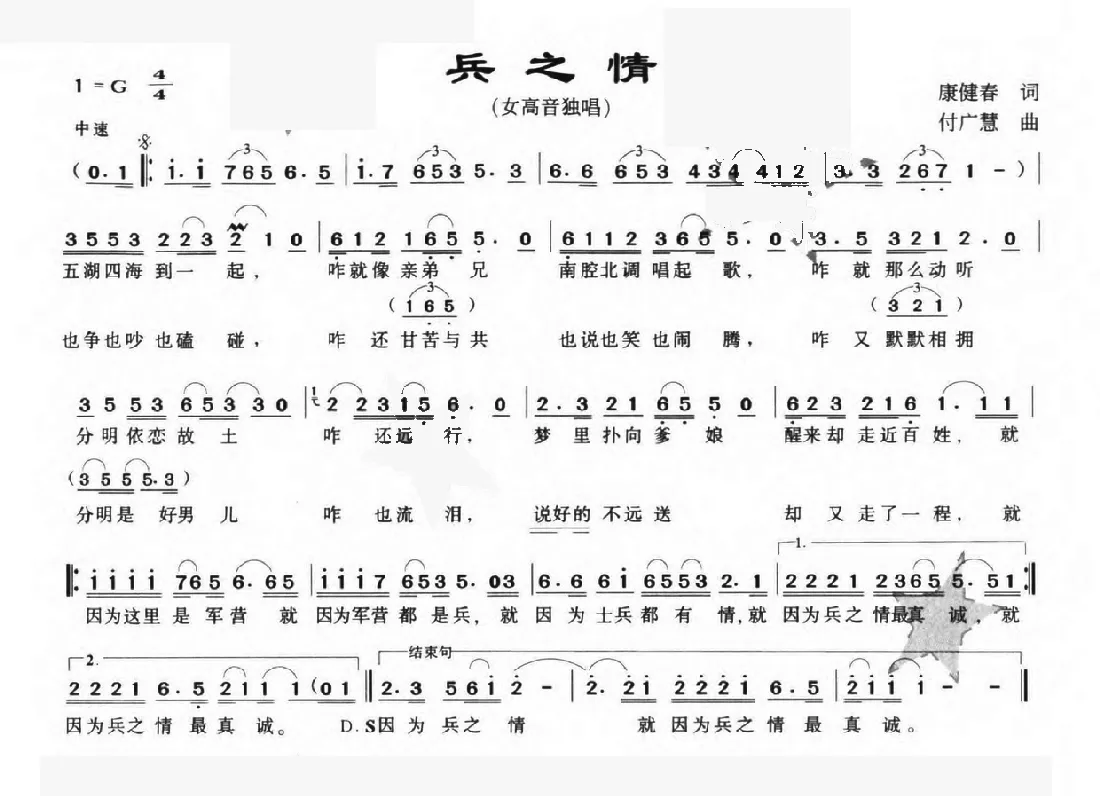 兵之情
1=G 4/4
(女高音独唱)
康健春 词
中速
付广慧 曲
(0.1 ‖: i.i 765 6.5 | i.7 653 5.3 | 6.6 653 434 412 | 3.3 267 1 -) |
3553 223 2 1 0 | 612 165 5.0 | 6112 365 5.0 | 3.5 321 2.0 |
五湖四海 到一 起， 咋就像 亲弟 兄 南腔北调 唱起 歌， 咋 就 那么动 听
(165) (321)
也争也吵 也磕 碰， 咋 还 甘苦与共 也说也笑 也闹 腾， 咋 又 默默相拥
3 5 53 653 30 | 2 2315 6.0 | 2.3 21 665 50 | 623 216 1.11 |
分明依恋 故 土 咋 还远 行， 梦 里 扑向 爹 娘 醒来却 走近百 姓， 就
(355 5.3)
分明是 好男 儿 咋 也流 泪， 说好的 不远送 却 又 走了一 程， 就
1.
‖: iiii 765 6.65 | iii7 6535.03 | 6.6 6i 6553 2.1 | 2221 2365 5.51 :‖
因为这里 是 军营 就 因为军营 都 是兵，就 因 为 士兵都 有 情，就 因为兵之 情最真 诚，就
2. 结束句
2221 6.5 211 1 (01 ‖ 2.3 56i 2 - | 2. 2i 222i 6.5 | 2ii i - - ‖
因为兵之 情 最 真 诚。 D.S因 为 兵之 情 就 因为兵之 情 最 真 诚。